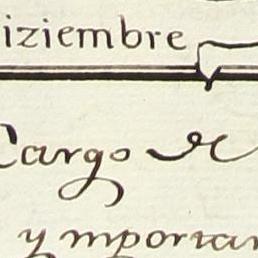 iziembre
Cargo de
y mportan